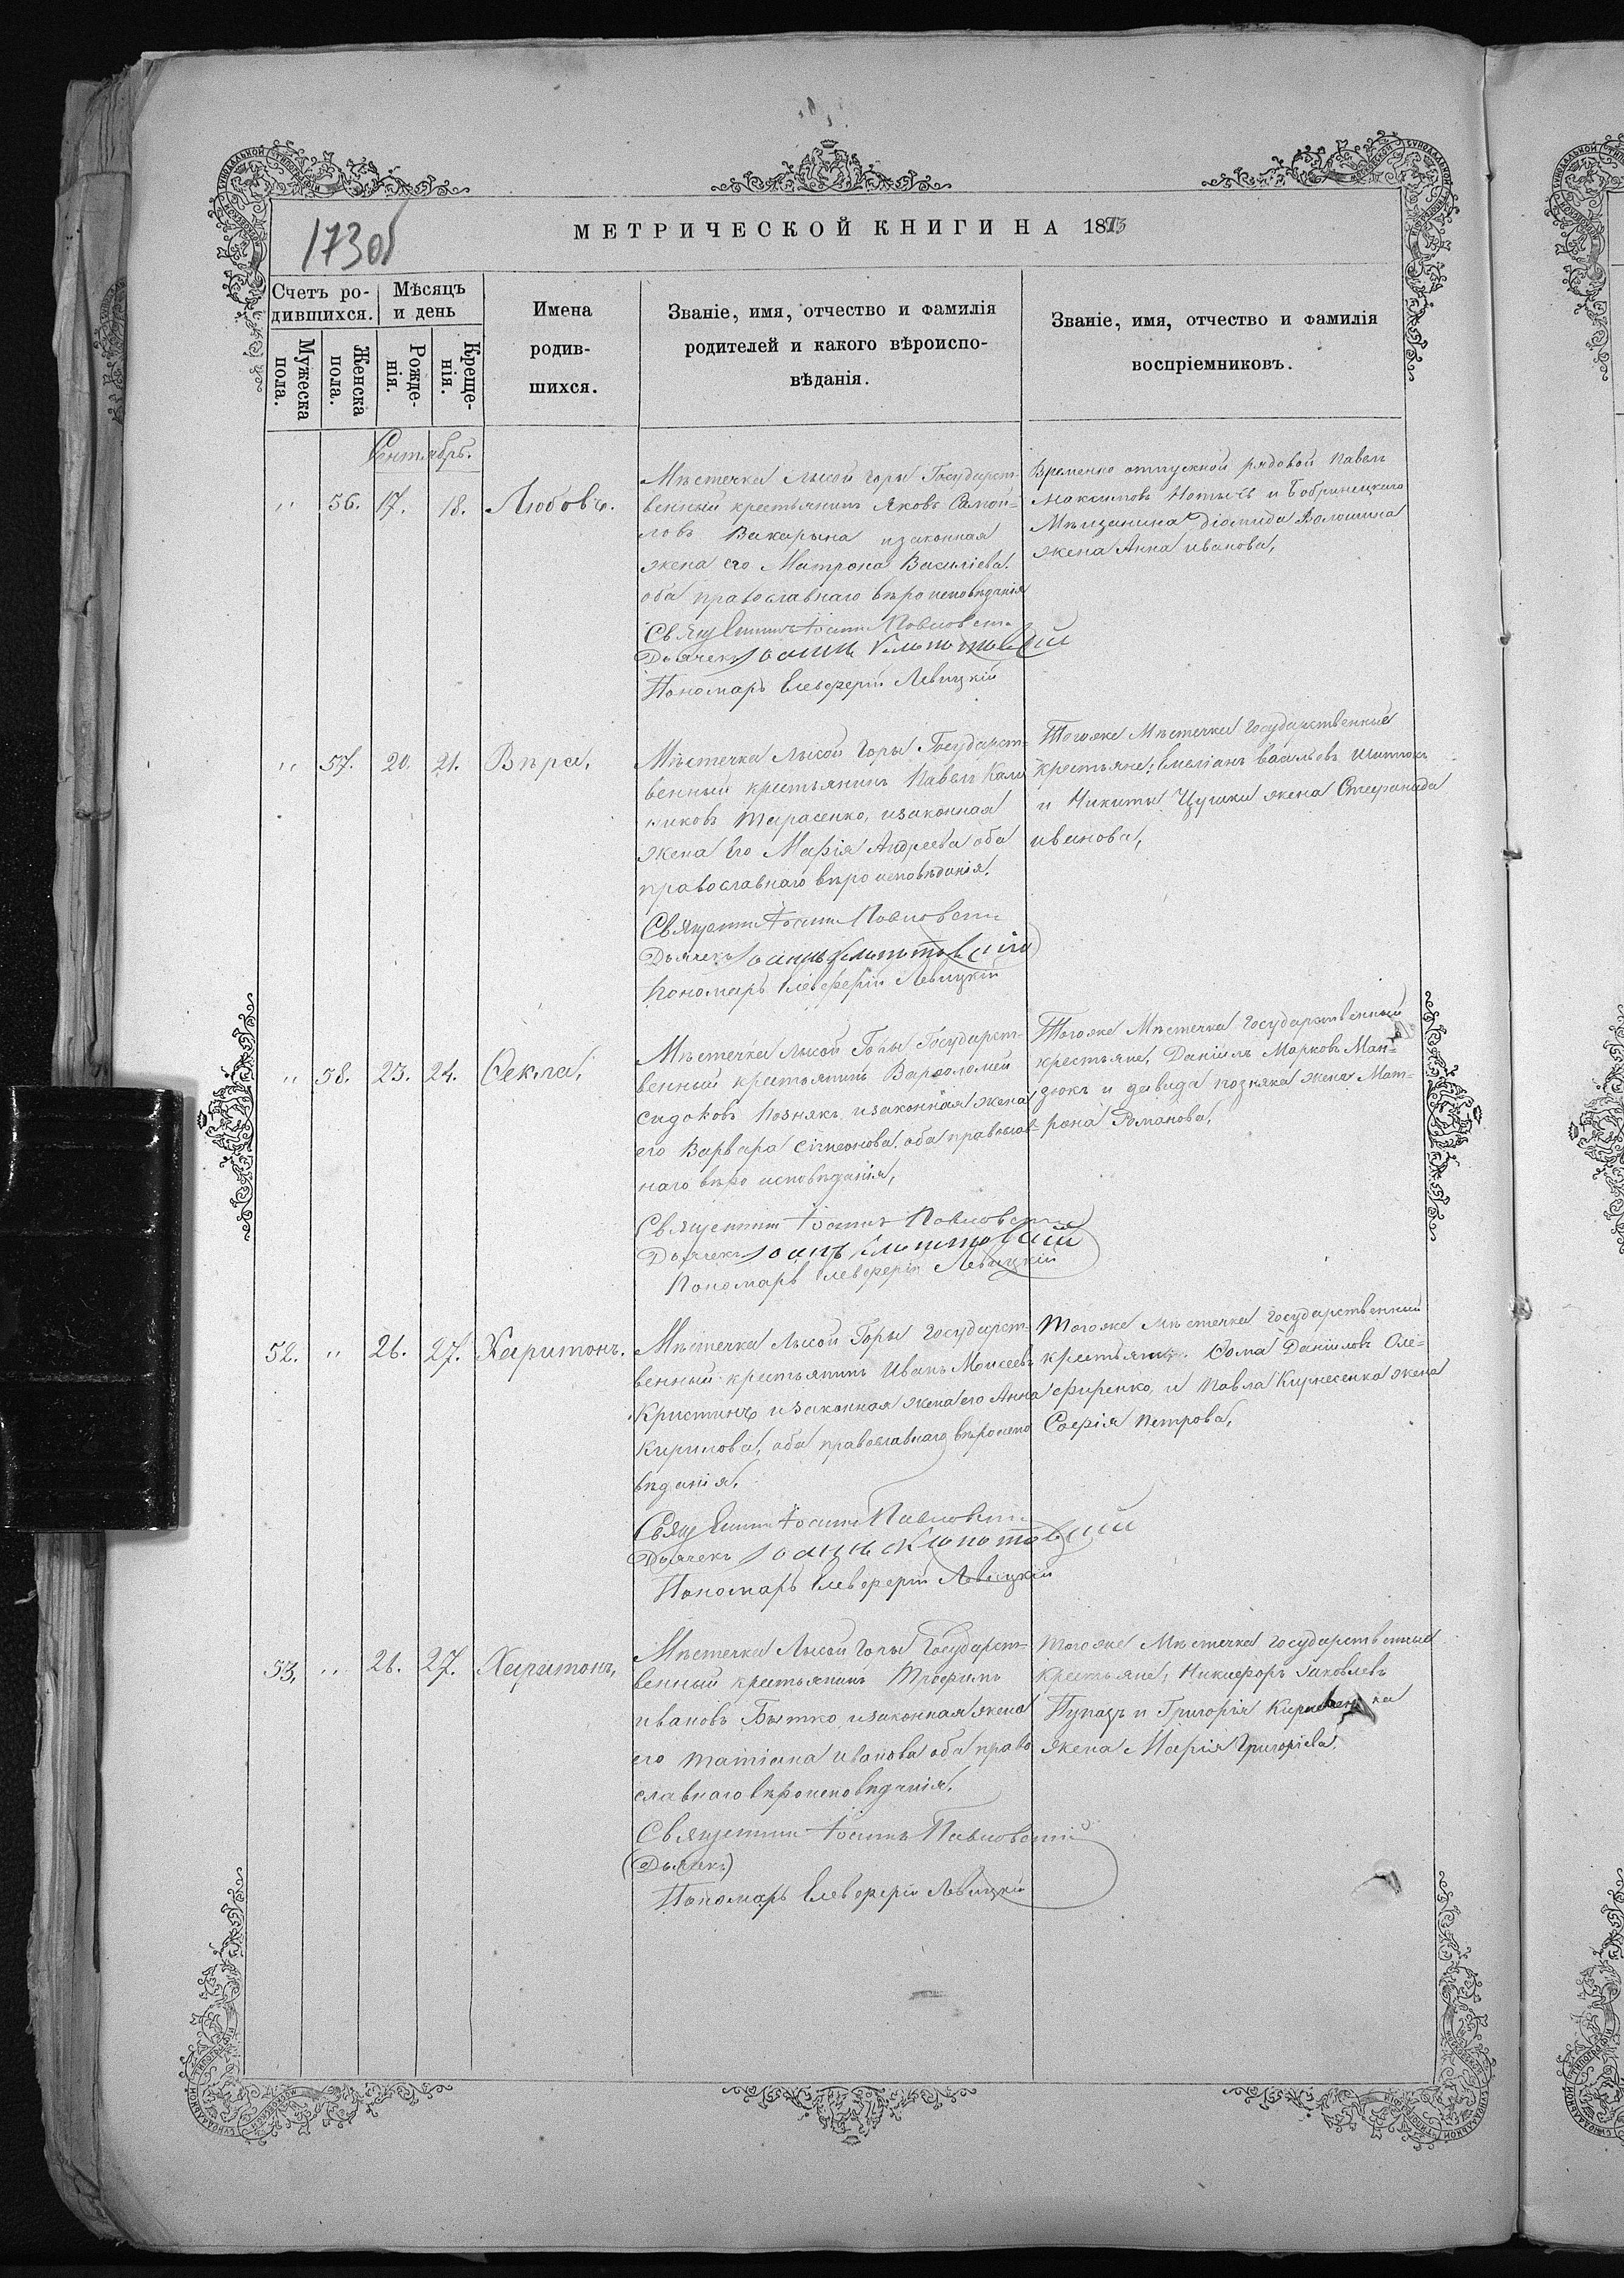 173 об
МЕТРИЧЕСКОЙ КНИГИ НА 1873
Счетъ ро-
дившихся.
Мѣсяцъ
и день
Мужеска
пола.
Женска
пола.
Рожде-
нія.
Креще-
нія.
Имена
родив-
шихся.
Званіе, имя, отчество и фамилія
родителей и какого вѣроиспо-
вѣданія.
Званіе, имя, отчество и фамилія
воспріемниковъ.
Сентябрь.
" 56. 17. 18. Любовь.
Мѣстечка Лысой горы Государст-
венный крестьянинъ Яковъ Самой-
ловъ Вакарына изаконная
жена его Матрона Василіева.
оба православнаго вѣро исповѣданія
Священникъ Іоаннъ Павловскій
Дьячекъ Іоаннъ Клопотовскій
Пономарь Елевферій Левицкій
Временно отпускной рядовой Павелъ
Максимовъ и Бобринецкаго
Мѣщанина Діомида Волошина
жена Анна иванова,
" 57. 20. 21. Вѣра,
Мѣстечка Лысой Горы Государст-
венный крестьянинъ Павелъ Кали
никовъ Тарасенко, изаконная
жена Его Марія Андреева оба
православнаго вѣро исповѣданія.
Священникъ Іоаннъ Павловскій
Дьячекъ Іоаннъ Клопотовскій
Пономарь Елевферій Левицкій
Тогоже Мѣстечка Государственные
крестьяне: Емеліанъ васильевъ
и Никиты Цушки жена Стефанида
иванова,
" 58. 23. 24. Ѳекла,
Мѣстечка Лысой Горы Государст-
венный крестьянинъ Варфоломей
Сидоровъ Познякъ, изаконная жена
его Варвара Сімеонова, оба православ-
наго вѣро исповѣданія,
Священникъ Іоаннъ Павловскій
Дьячекъ Іоаннъ Клопотовскій
Пономарь Елевферій Левицкій
Тогоже Мѣстечка Государственный
крестьяне, Даніилъ Марковъ Ман-
дюкъ и давида позняка жена Мат-
рона Романова,
52. " 26. 27. Харитонъ.
Мѣстечка Лысой Горы Государст-
венный крестьянинъ Иванъ Моисеевъ
Кристинъ изаконная жена его Анна
Кирилова, оба православнаго вѣроиспо
вѣданія.
Священникъ Іоаннъ Павловскій
Дьячекъ Іоаннъ Клопотовскій
Пономарь Елевферій Левицкій
Тогоже мѣстечка Государственный
крестьяне. Ѳома Даніиловъ Оле-
фиренко, и Павла Кирнесенка жена
Софія Петрова,
53, " 26. 27. Харитонъ,
Мѣстечка Лысой Горы Государст-
венный крестьянинъ Трофимъ
ивановъ Бытко изаконная жена
его татіана иванова оба право
славнаго вѣроисповѣданія,
Священникъ Іоаннъ Павловскій
(Дьячекъ)
Пономарь Елевферій Левицкій
Тогоже Мѣстечка государственные
крестьяне, Никифоръ Іаковлевъ
и Григорія
жена Марія Григоріева.